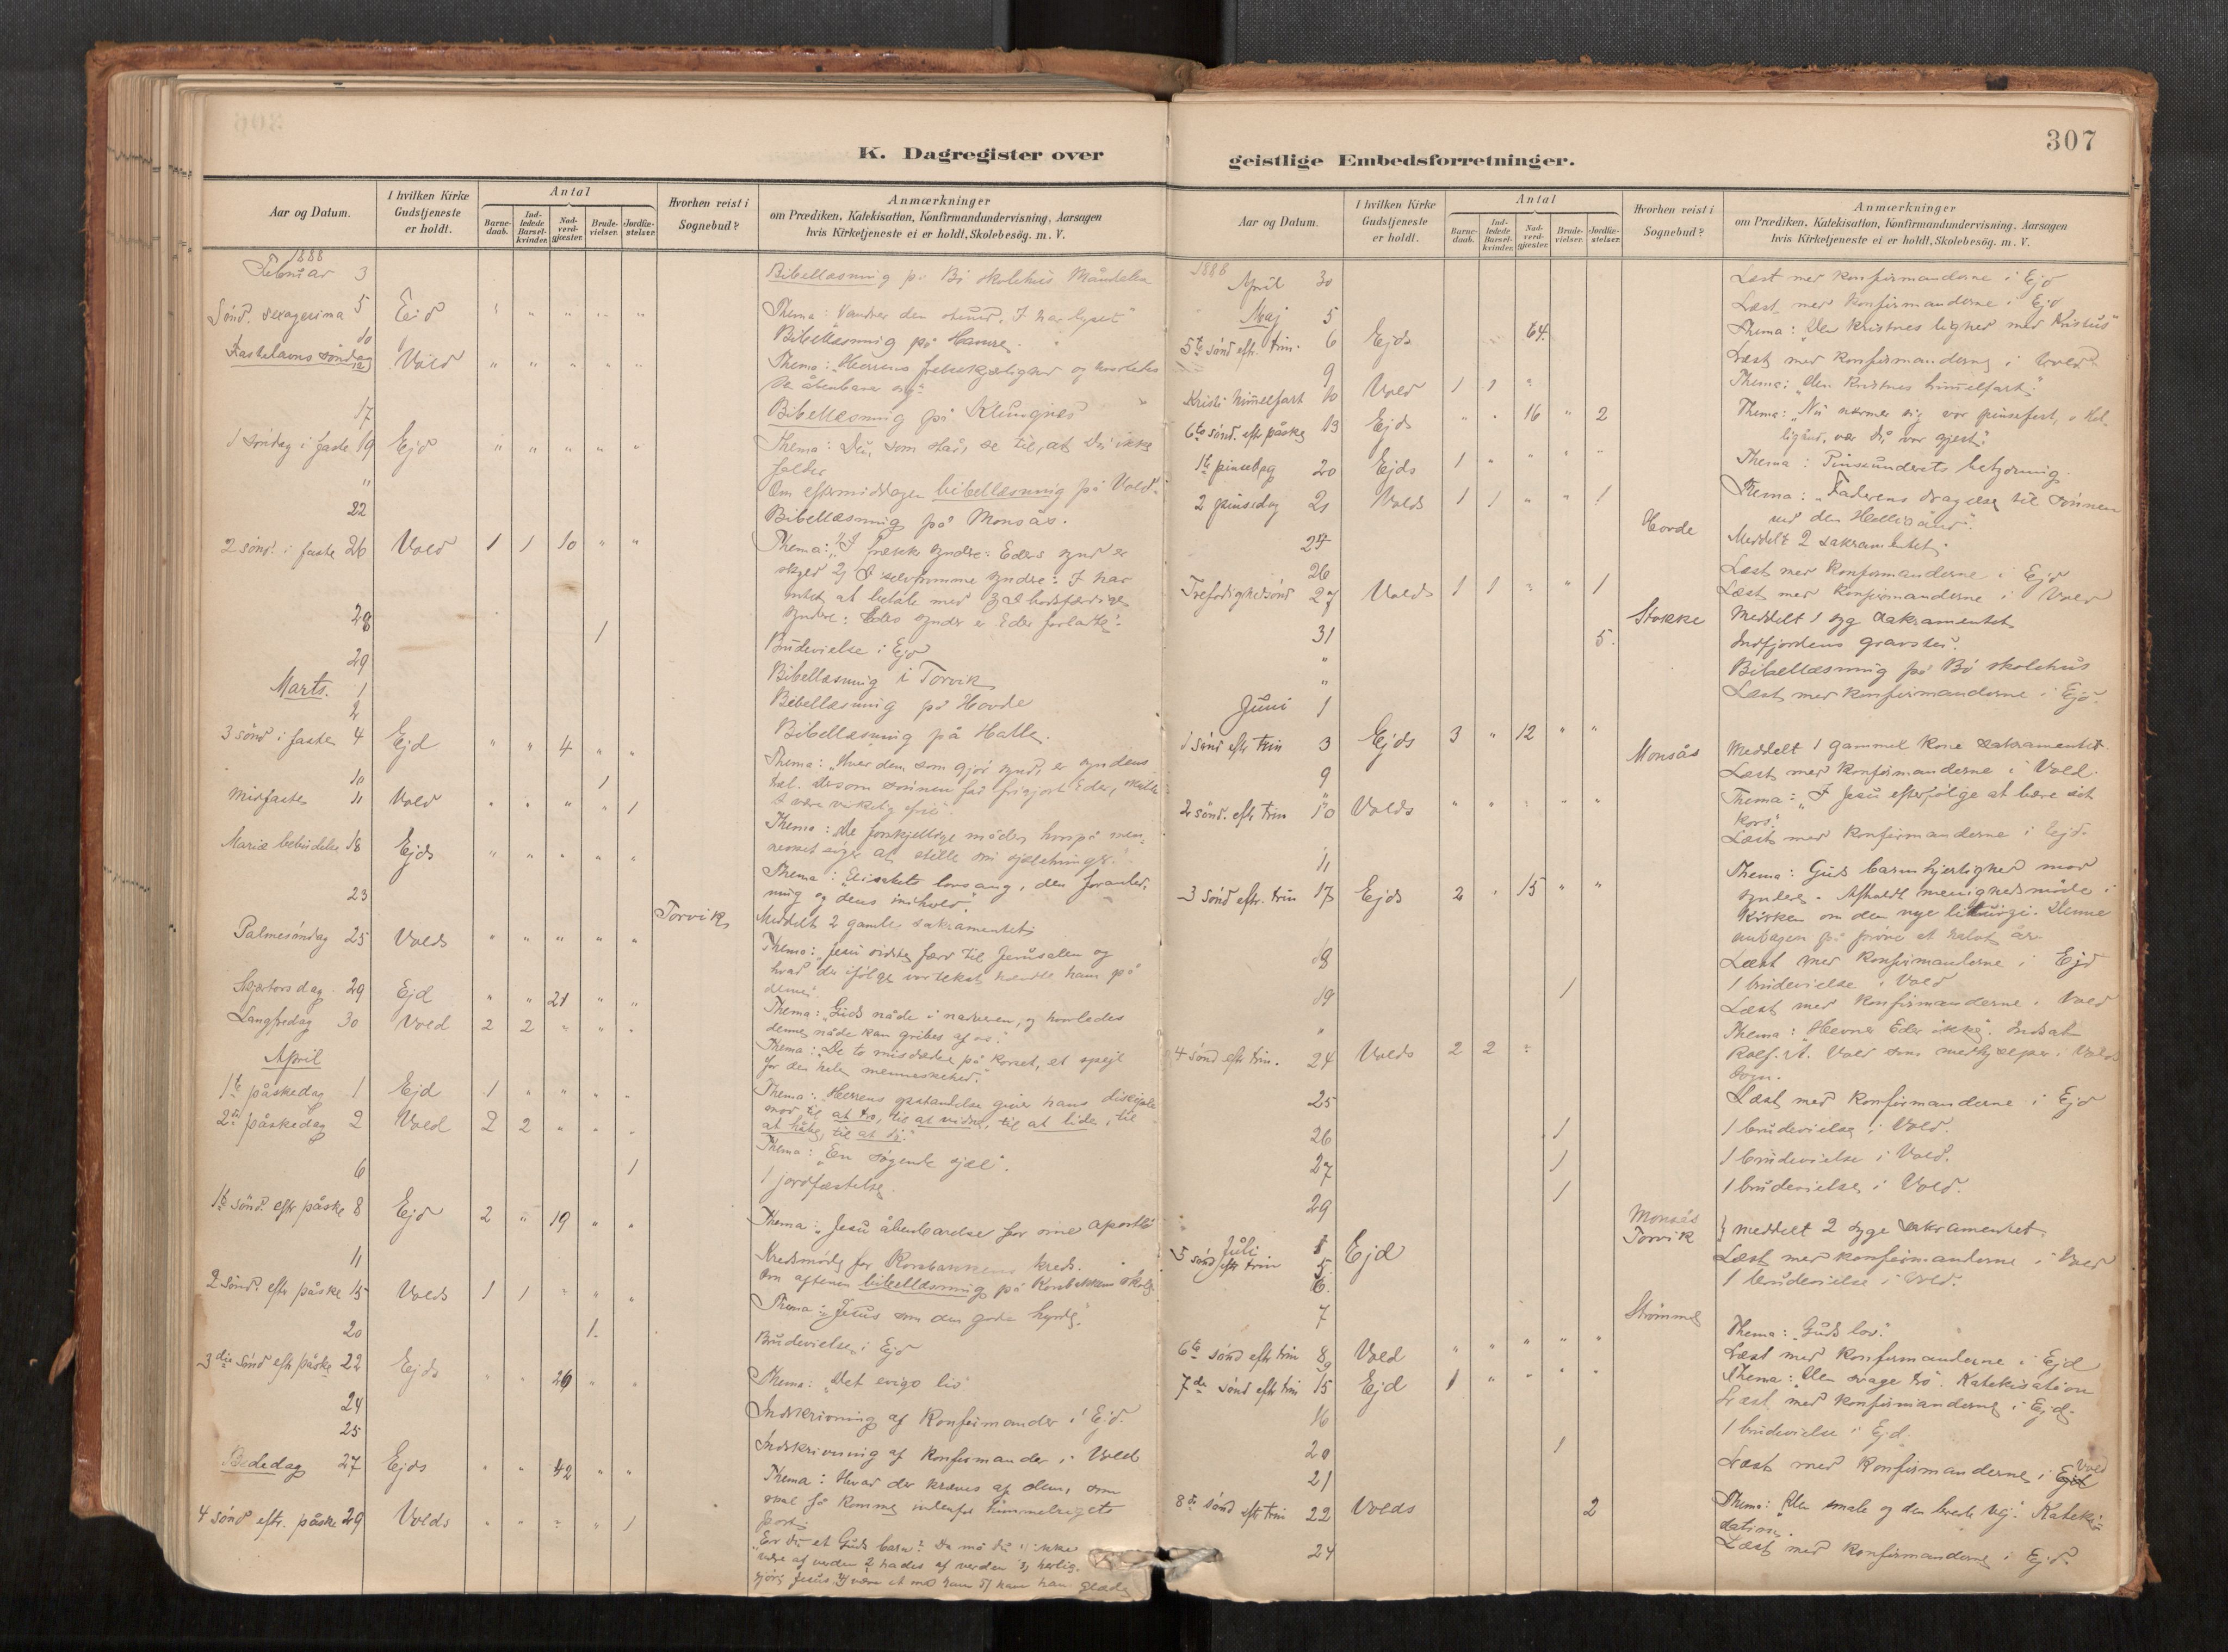 K. Dagregister over
Aar og Datum.
I hvilken Kirke Gudstjeneste er holdt.
Antal
Barne-daab.
Ind-ledede Barsel-kvinder.
Nad-verd-gjester.
Brude-vielser.
Jordfæ-stelser.
Hvorhen reist i Sognebud?
Anmærkninger
om Prædiken, Katekisation, Konfirmandundervisning, Aarsagen
hvis Kirketjeneste ei er holdt, Skolebesög. m. V.
1888
Februar 3 Bibellæsning på Bö skolehus Måndalen
Sönd. sexagesima 5 Eid " " " " " Thema: Vandrer den stund, I har lyset"
10 Bibellæsning på Hamre.
Fastelavns söndag 12 Vold " " " " " Thema: "Herrens frelserkjærlighed og hvorledes
den åbenbarer sig".
17 Bibellæsning på Klungnes
1 söndag i faste 19 Ejd " " " " " Thema: Du, som står, se til, at du ikke
falder
" Om eftermiddagen bibellæsning på Vold.
22 Bibellæsning på Monsås.
2 sönd. i faste 26 Vold 1 1 10 " " Thema: "1) I frække syndre: Eders synd er
2) I selvfromme syndre: I har
intet at betale med 3) I bodfærdige
syndere: Eders synder er Eder forladte".
28 1 Brudevielse i Ejd
29 Bibellæsning i Torvik
Marts. 1 Bibellæsning på Hovde
2 Bibellæsning på Halle.
3 sönd i faste 4 Ejd " " 4 " " Thema: "Hver den, som gjör synd, er syndens
træl. Dersom sönnen får frigjort Eder, skulle
I være virkelig frie".
10 1
Midfaste 11 Vold " " " " 1 Thema: De forskjellige måder, hvorpå men-
nesket söger at stille sin sjælehunger".
Mariæ bebudelse 18 Ejds " " " " " Thema: "Elisabets lovsang, den foranled-
ning og dens indhold".
23 Torvik Meddelt 2 gamle sakramentet
Palmesöndag 25 Volds " " " " " Thema: "Jesu sidste færd til Jerusalem og
hvad der ifölge vor tekst hændte ham på
denne".
Skjærtorsdag 29 Ejd " " 21 " " Thema: "Guds nåde i nadveren, og hvorledes
denne nåde kan gribes af os".
Langfredag 30 Vold 2 2 " " " Thema: "De to misdædere på korset, et spejl
for den hele menneskehed."
April
1te påskedag 1 Ejd 1 " " " " Thema: "Herrens opstandelse giver hans disciple
mod til at tro, til at vidne, til at lide, til
at håbe, til at dø."
2den påskedag 2 Vold 2 2 " " " Thema: "En søgende sjæl".
6 1 1 jordfæstelse
1te sönd. eftr påske 8 Ejd 2 " 19 " " Thema: "Jesu åbenbarelse for sine apostle
11 Kredsmöde for Korsbakkens kreds.
Om aftenen bibellæsning på Korsbakken skole.
2 sönd. eftr påske 15 Volds 1 1 " " " Thema: "Jesus som den gode hyrde".
20 1 Brudevielse i Ejd
3die sönd eftr påske 22 Ejds " " 26 " " Thema: "Det evige liv"
24 Indskrivning af Konfirmander i Ejd.
25 Indskrivning af Konfirmander i Vold
Bededag 27 Ejds " " 42 " " Thema: Hvad der kræves af dem, som
skal få komme indenfor himmelrigets
port.
4 sönd eftr. påske 29 Volds " " " " 1 "Er du et Guds barn? Da må du 1) ikke
være af verden 2) hades af verden 3) herlig-
gjöre Jesus 4) være et med ham 5) have hans glæde
307
geistlige Embedsforretninger.
Aar og Datum.
I hvilken Kirke Gudstjeneste er holdt.
Antal
Barne-daab.
Ind-ledede Barsel-kvinder.
Nad-verd-gjester.
Brude-vielser.
Jordfæ-stelser.
Hvorhen reist i Sognebud?
Anmærkninger
om Prædiken, Katekisation, Konfirmandundervisning, Aarsagen
hvis Kirketjeneste ei er holdt, Skolebesög. m. V.
1888
April 30 Læst med konfirmanderne i Ejd
Maj 5 Læst med konfirmanderne i Ejd
5te sönd eftr. 6 Ejds 64. Thema: "Den kristnes lighed med Kristus"
9 Læst med konfirmanderne i Vold
Kristi himmelfart 10 Vold 1 1 " Thema: "Den kristnes himmelfart".
6te sönd. eftr påske 13 Ejds " " 16 " 2 Thema: "Nu nærmer sig vor pinsefest, o Hel-
ligånd, vær du vor gjest".
1te pinsedag 20 Ejds 1 " " " " Thema: Pinseunderets betydning.
2 pinsedag 21 Volds 1 1 " " 1 Thema: "Faderens dragelse til sönnen
ved den Helligånd".
24 Hovde Meddelt 2 sakramentet.
26 Læst med konfirmanderne i Ejd
Trefoldighedsönd 27 Volds 1 1 " " 1 Læst med konfirmanderne i Vold
Stokke Meddelt 1 syg sakramentet
31 5. Indfjordens gravsted.
" Bibellæsning på Bö skolehus
" Læst med konfirmanderne i Ejd.
Juni 1
1 sönd eftr trin 3 Ejds 3 " 12 " "
Monsås Meddelt 1 gammel kone sakramentet.
9 Læst med konfirmanderne i Vold.
2 sönd. eftr trin 10 Volds " " " " " Thema: "I Jesu efterfölge at bære sit
kors".
11 Læst med konfirmanderne i Ejd.
3 sönd eftr. trin 17 Ejds 2 " 15 " " Thema: Guds barmhjertighed mod
syndere. Afholdt menighedsmöde i
kirken om den nye liturgi. Denne
antagen på pröve et halvt år.
18 Læst med konfirmanderne i Ejd
19 1 1 brudevielse i Vold
" Læst med konfirmanderne i Vold
4 sönd eftr trin. 24 Volds 2 2 " Thema: "Hevner Eder ikke". Indsat
Rolf. A. Vold som medhjælper i Volds
sogn.
25 Læst med konfirmanderne i Ejd
26 1 1 brudevielse i Vold.
27 1 1 brudevielse i Vold.
29 1 1 brudevielse i Vold.
Monsås
Torvik } meddelt 2 syge sakramentet
Juli Læst med konfirmanderne i Vold
5 sönd eftr trin Ejd
5.
6. 1 brudevielse i Vold.
7 Strømme
6te sönd eftr trin 8 Vold " " " " " Thema: "Guds lov".
9 Læst med konfirmanderne i Ejd
7de sönd eftr trin 15 Ejd 1 " " " " Thema: "Den svage tro". Katekisation
16 Læst med konfirmanderne i Ejd.
20 1 1 brudevielse i Ejd
21 Læst med konfirmanderne i Vold
8de sönd eftr trin 22 Volds 2 Thema: "Den smale og den brede vej". Kateki-
sation.
24 Læst med konfirmanderne i Ejd.